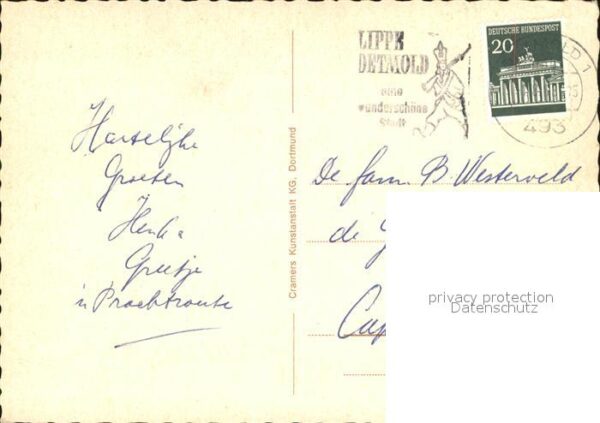 LIPPE
DETMOLD
eine
wunderschöne
Stadt
DEUTSCHE BUNDESPOST
20
LD 1
493
Hartelijke
Groeten
Henk &
Greetje
Cramers Kunstanstalt KG, Dortmund
De fam. B. Westerveld
de
Cap
privacy protection
Datenschutz